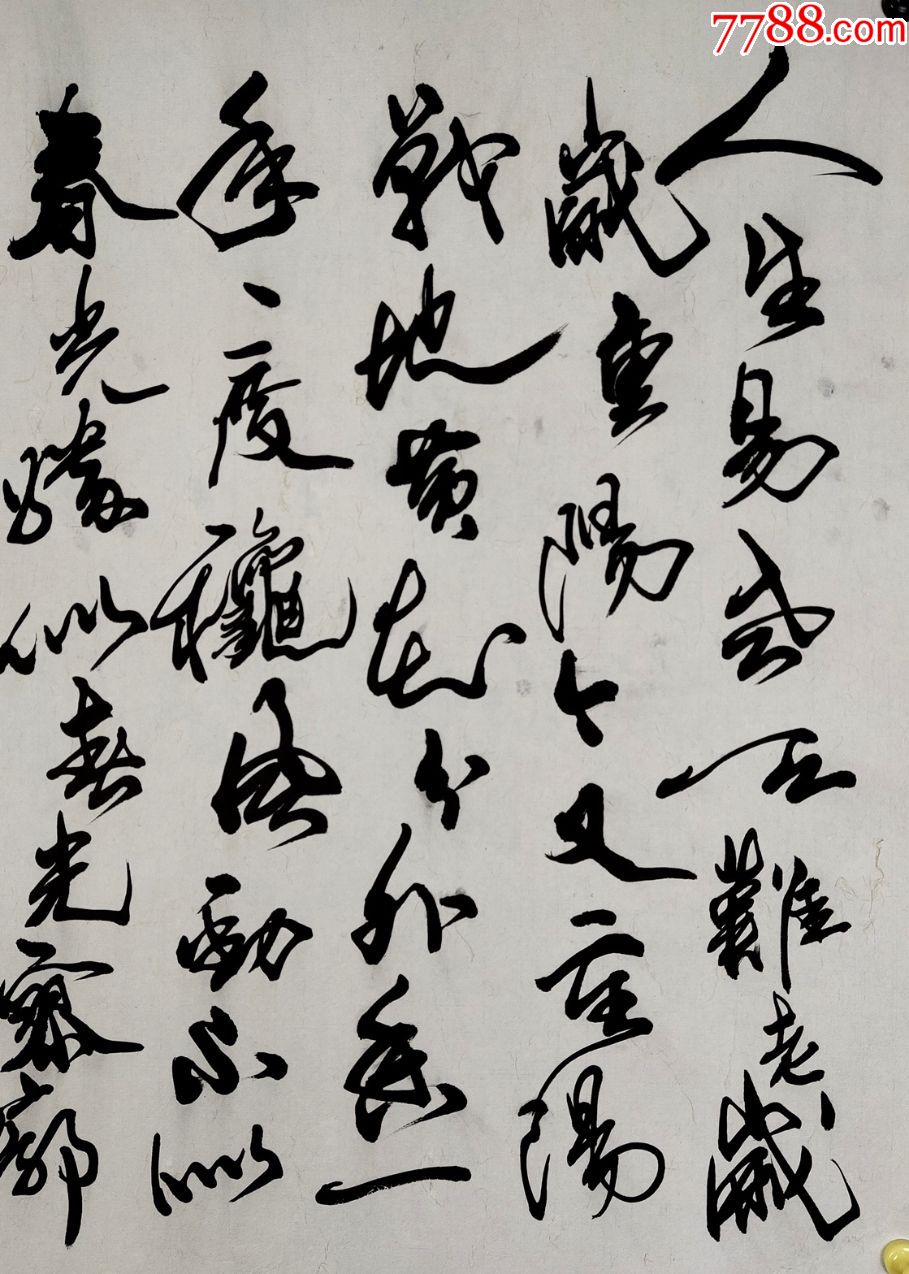 7788.com
人生易老天難老歲
歲重陽今又重陽
戰地黄花分外香一
年一度龝風勁不似
春光勝似春光寥廓